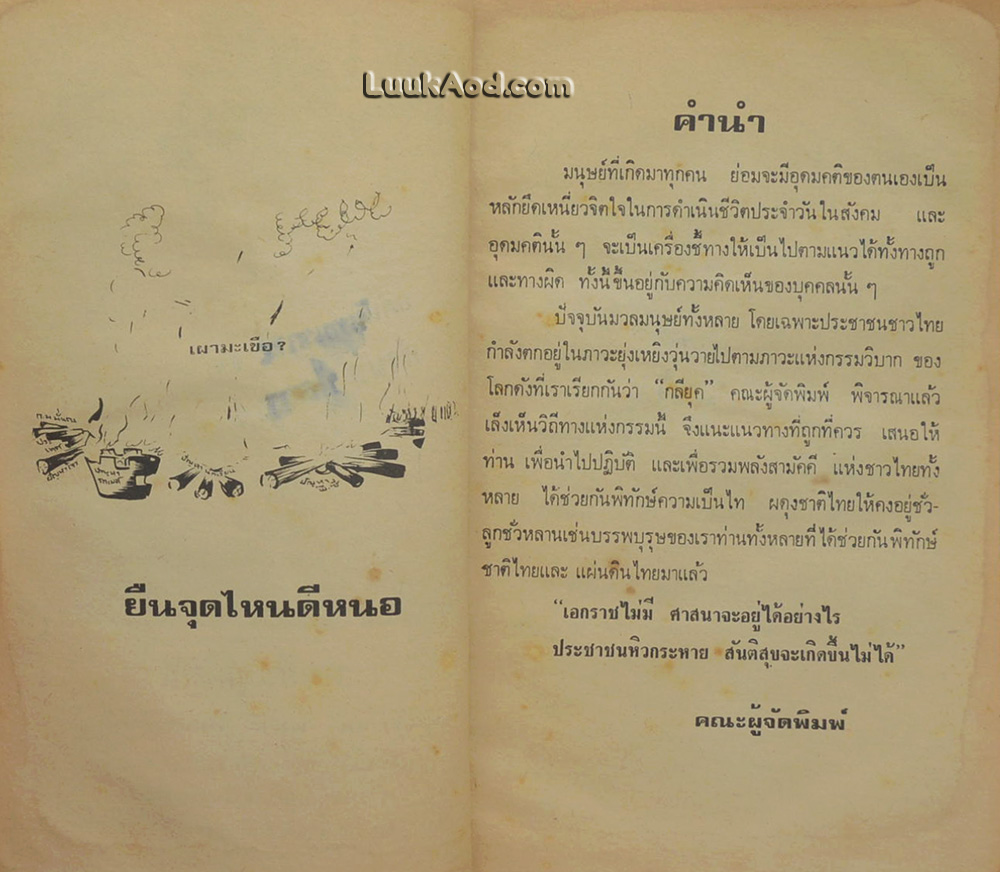 LuukAod.com
เผามะเขือ?
ยืนจุดไหนดีหนอ
คำนำ
มนุษย์ที่เกิดมาทุกคน ย่อมจะมีอุดมคติของตนเองเป็น
หลักยึดเหนี่ยวจิตใจในการดำเนินชีวิตประจำวันในสังคม และ
อุดมคตินั้น ๆ จะเป็นเครื่องชี้ทางให้เป็นไปตามแนวได้ทั้งทางถูก
และทางผิด ทั้งนี้ขึ้นอยู่กับความคิดเห็นของบุคคลนั้น ๆ
ปัจจุบันมวลมนุษย์ทั้งหลาย โดยเฉพาะประชาชนชาวไทย
กำลังตกอยู่ในภาวะยุ่งเหยิงวุ่นวายไปตามภาวะแห่งกรรมวิบาก ของ
โลกดังที่เราเรียกกันว่า “กลียุค” คณะผู้จัดพิมพ์ พิจารณาแล้ว
เล็งเห็นวิถีทางแห่งกรรมนี้ จึงแนะแนวทางที่ถูกที่ควร เสนอให้
ท่าน เพื่อนำไปปฏิบัติ และเพื่อรวมพลังสามัคคี แห่งชาวไทยทั้ง
หลาย ได้ช่วยกันพิทักษ์ความเป็นไท ผดุงชาติไทยให้คงอยู่ชั่ว-
ลูกชั่วหลานเช่นบรรพบุรุษของเราท่านทั้งหลายที่ได้ช่วยกันพิทักษ์
ชาติไทยและ แผ่นดินไทยมาแล้ว
“เอกราชไม่มี ศาสนาจะอยู่ได้อย่างไร
ประชาชนหิวกระหาย สันติสุขจะเกิดขึ้นไม่ได้”
คณะผู้จัดพิมพ์